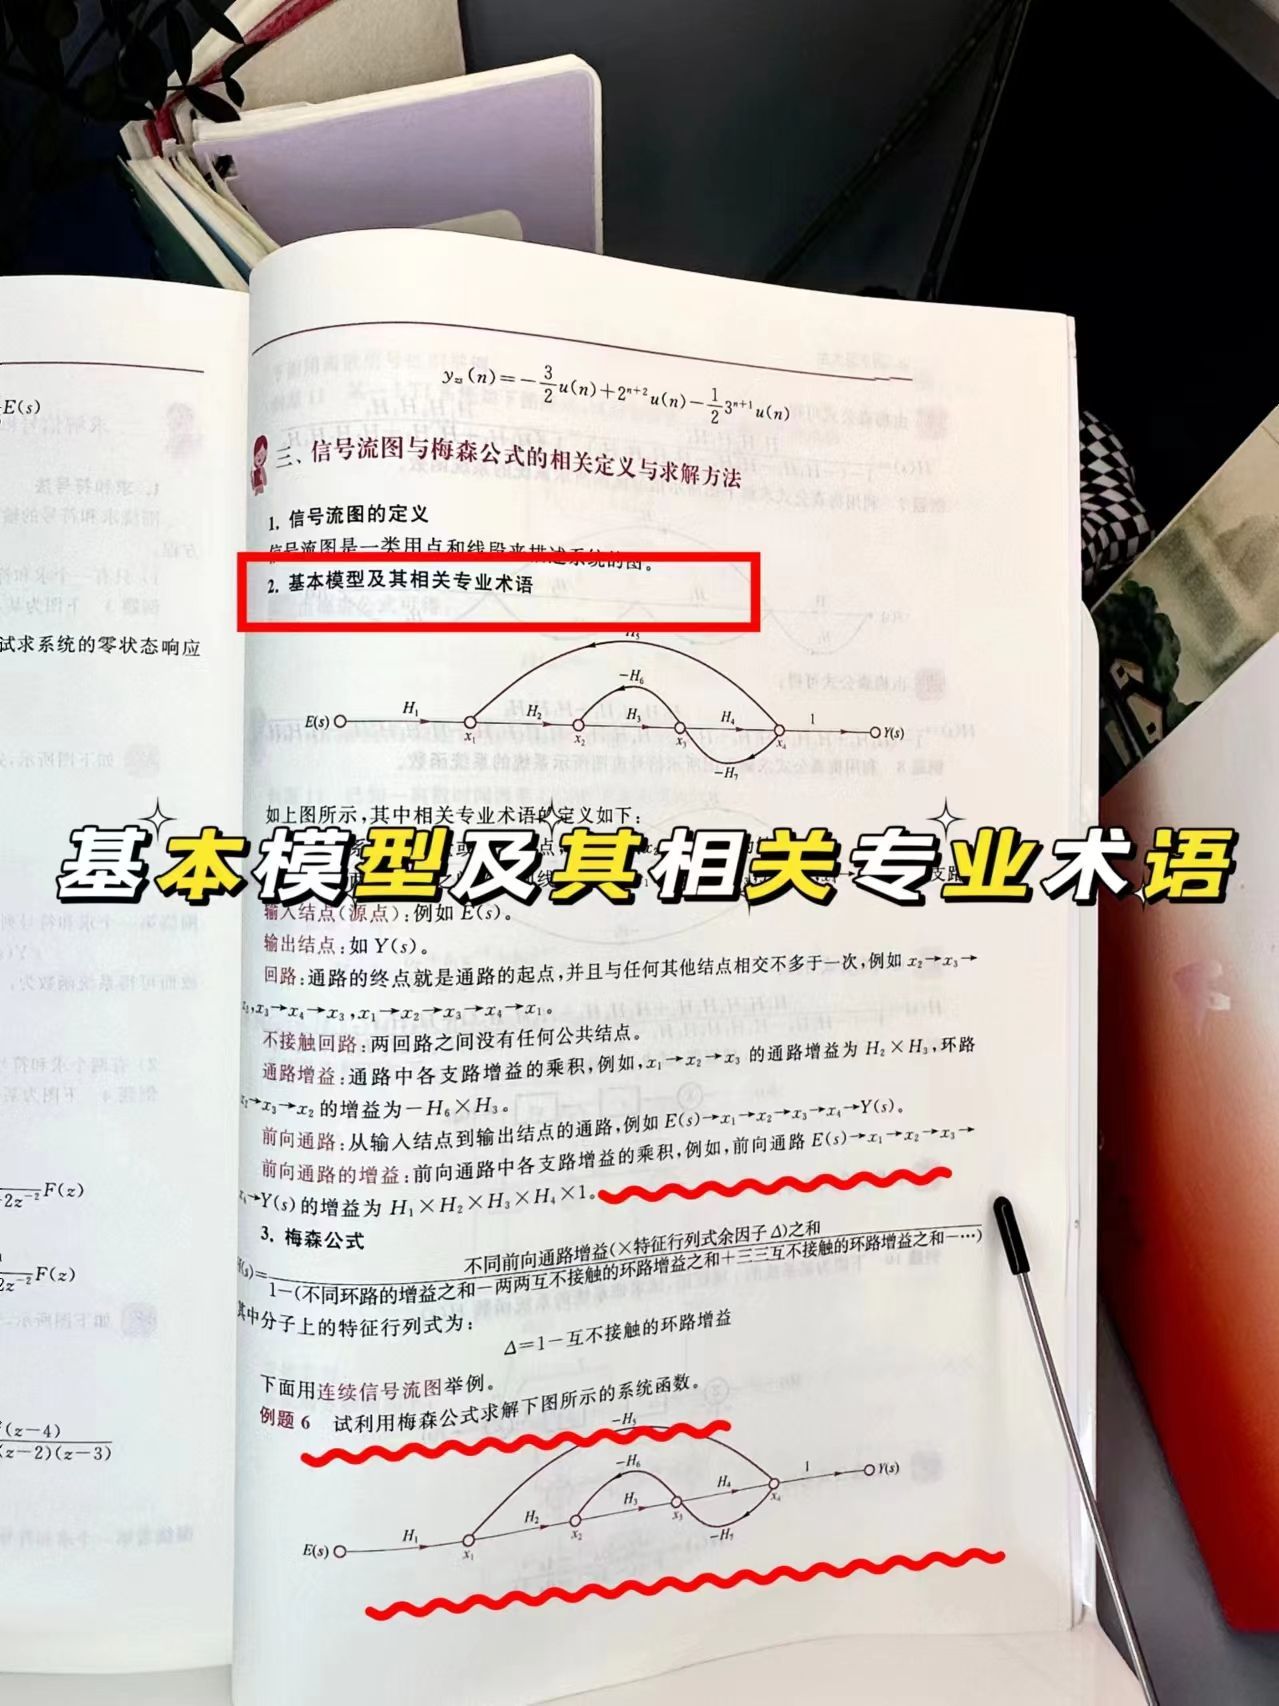 E(s)
试求系统的零状态响应
F(z)
F(z)
(z-4)
(z-2)(z-3)
y_{zs}(n)=-\frac{3}{2}u(n)+2^{n+2}u(n)-\frac{1}{2}3^{n+1}u(n)
三、信号流图与梅森公式的相关定义与求解方法
1. 信号流图的定义
信号流图是一类用点和线段来描述系统的图。
2. 基本模型及其相关专业术语
-H₆
E(s) H₁ H₂ H₃ H₄ 1 Y(s)
x₁ x₂ x₃ x₄
-H₇
如上图所示,其中相关专业术语的定义如下:
基本模型及其相关专业术语
输入结点(源点):例如 E(s)。
输出结点:如 Y(s)。
回路:通路的终点就是通路的起点,并且与任何其他结点相交不多于一次,例如 x₂→x₃→
x₂,x₃→x₄→x₃,x₁→x₂→x₃→x₄→x₁。
不接触回路:两回路之间没有任何公共结点。
通路增益:通路中各支路增益的乘积,例如,x₁→x₂→x₃ 的通路增益为 H₂×H₃,环路
→x₃→x₂ 的增益为-H₆×H₃。
前向通路:从输入结点到输出结点的通路,例如 E(s)→x₁→x₂→x₃→x₄→Y(s)。
前向通路的增益:前向通路中各支路增益的乘积,例如,前向通路 E(s)→x₁→x₂→x₃→
x₄→Y(s)的增益为 H₁×H₂×H₃×H₄×1。
3. 梅森公式
H(s)=
不同前向通路增益(×特征行列式余因子 Δ)之和
1-(不同环路的增益之和-两两互不接触的环路增益之和+三三互不接触的环路增益之和-…)
其中分子上的特征行列式为:
Δ=1-互不接触的环路增益
下面用连续信号流图举例。
例题 6 试利用梅森公式求解下图所示的系统函数。
-H₅
-H₆
E(s) H₁ H₂ H₃ H₄ 1 Y(s)
x₁ x₂ x₃ x₄
-H₇